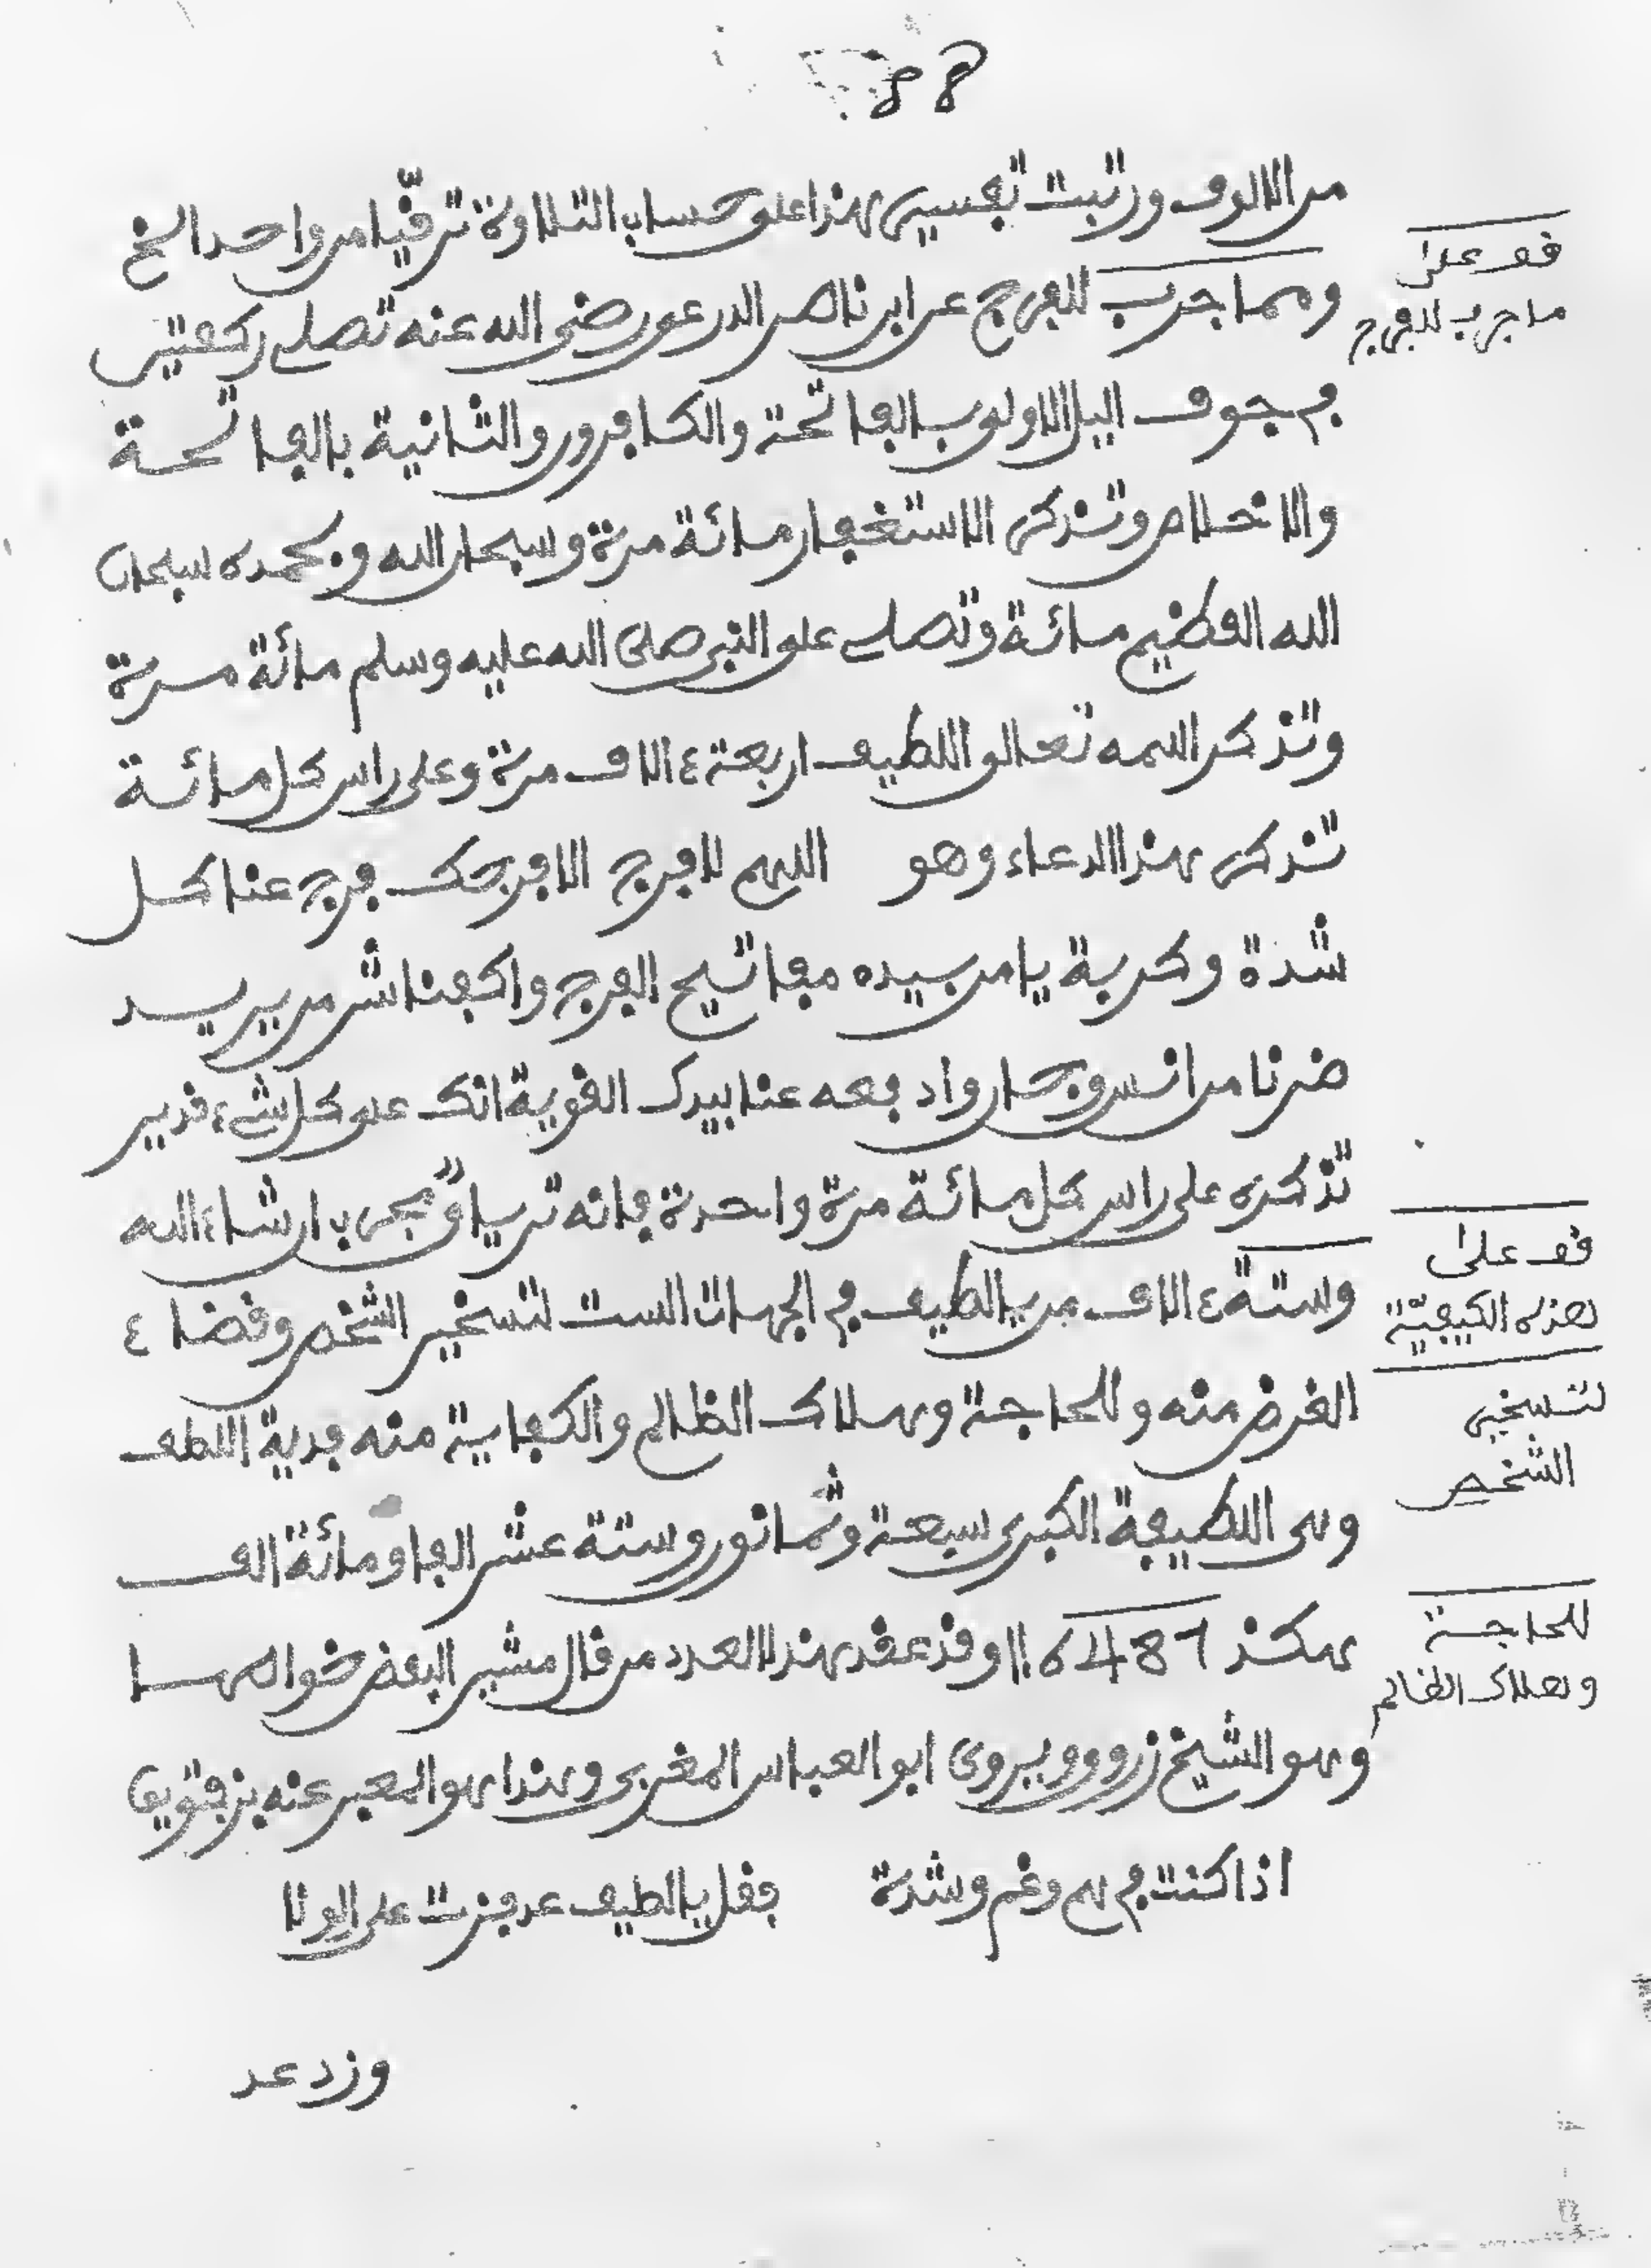 88
من الالوف ورتبت تفسير هذا على حساب التلاوة ترقيا من واحد الخ
قف على
ما جرب للفرج
ومما جرب للفرج عن ابن ناصر الدرعي رضي الله عنه تصلي ركعتين
في جوف اليل الاولى بالفاتحة والكافرون والثانية بالفاتحة
والاخلاص وتذكر الاستغفار مائة مرة وسبحان الله وبحمده سبحان
الله العظيم مائة وتصلي على النبي صلى الله عليه وسلم مائة مرة
وتذكر اسمه تعالى اللطيف اربعة ٤الاف مرة وعلى راس كل مائة
تذكر هذا الدعاء وهو اللهم لا فرج الا فرجك ففرج عنا كل
شدة وكربة يا من بيده مفاتيح الفرج واكفنا شر من يريد
ضرنا من انس وجان وادفعه عنا بيدك القوية انك على كل شيء قدير
تذكره على راس كل مائة مرة واحدة فانه ترياق مجرب ان شاء الله
قف على
هذه الكيفية
لتسخير
الشخص
وستة ٤الاف من يا لطيف في الجهات الست لتسخير الشخص وقضاء
الغرض منه وللحاجة وهلاك الظالم والكفاية منه فدية اللطف
وهي اللطيفة الكبرى سبعة وثمانون وستة عشر الفا ومائة الف
للحاجة
وهلاك الظالم
هكذ 6487 اا وقد عقد هذا العدد من قال مشير البعض خواصها
وهو الشيخ زروق ويروى ابو العباس المغربي وهذا هو المعبر عنه بزقتويق
اذا كنت في هم وغم وشدة فقل يا لطيف عد فزت على الولا
وزد عد